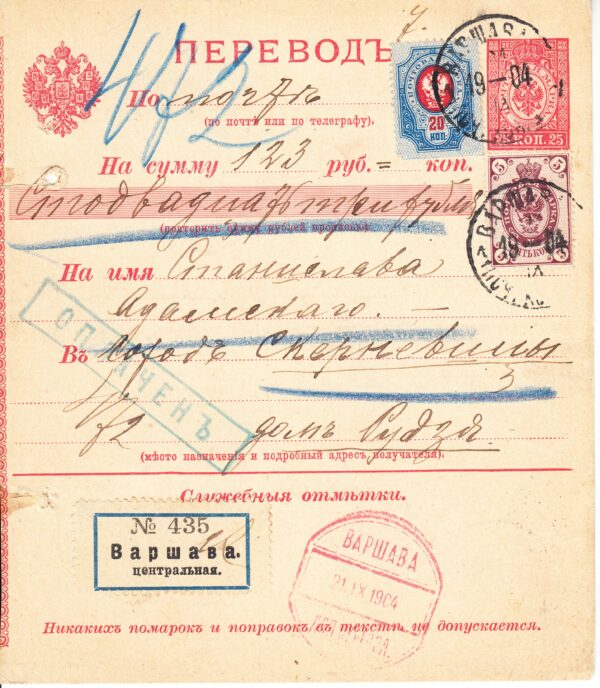 7.
ПЕРЕВОДЪ
По почтѣ
(по почтѣ или по телеграфу).
На сумму 123 руб. = коп.
Сто двадцать три рубля
(повторить сумму рублей прописью)
На имя Станислава
Адамскаго. —
Въ городъ Скерневицы
домъ Судзя
(мѣсто назначенія и подробный адресъ получателя).
ОПЛАЧЕНЪ
ПОЧТОВАЯ
20
КОП.
КОП. 25
5 5
5 5
ВАРШАВА
19—04
ВАРШАВА
19—04
Служебныя отмѣтки.
№ 435
Варшава.
центральная.
ВАРШАВА
21 IX 1904
Никакихъ помарокъ и поправокъ въ текстѣ не допускается.